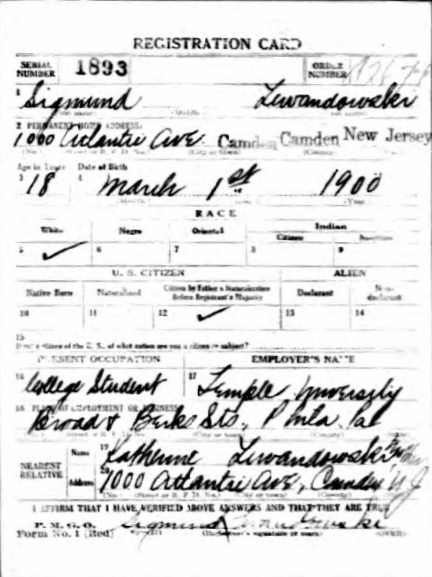 REGISTRATION CARD
SERIAL NUMBER 1893 ORDER NUMBER
1 Sigmund Lewandowski
2 PERMANENT HOME ADDRESS:
1000 Atlantic Ave. Camden Camden New Jersey
Age in Years Date of Birth
3 18 4 March 1st 1900
RACE
White Negro Oriental Indian
Citizen Noncitizen
5 ✓ 6 7 8 9
U. S. CITIZEN ALIEN
Native Born Naturalized Citizen by Father's Naturalization Before Registrant's Majority Declarant Non-declarant
10 11 12 ✓ 13 14
15
If not a citizen of the U. S., of what nation are you a citizen or subject?
PRESENT OCCUPATION EMPLOYER'S NAME
16 College Student 17 Temple University
18 PLACE OF EMPLOYMENT OR BUSINESS
Broad & Berks Sts., Phila. Pa.
NEAREST RELATIVE
Name 19 Katherine Lewandowski
Address 20 1000 Atlantic Ave, Camden N J
I AFFIRM THAT I HAVE VERIFIED ABOVE ANSWERS AND THAT THEY ARE TRUE
P. M. G. O.
Form No. 1 (Red) Sigmund Lewandowski